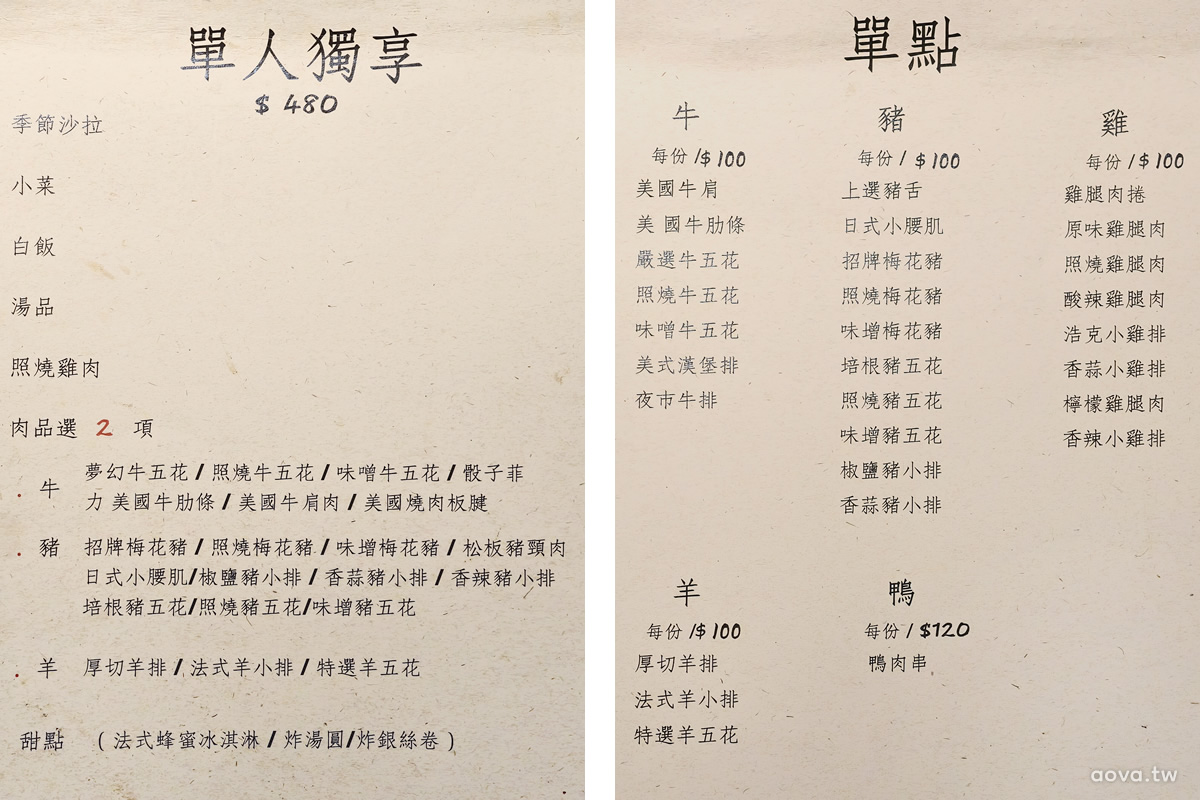 單人獨享
$ 480
季節沙拉
小菜
白飯
湯品
照燒雞肉
肉品選 2 項
. 牛 夢幻牛五花 / 照燒牛五花 / 味噌牛五花 / 骰子菲
力 美國牛肋條 / 美國牛肩肉 / 美國燒肉板腱
. 豬 招牌梅花豬 / 照燒梅花豬 / 味增梅花豬 / 松板豬頸肉
日式小腰肌/椒鹽豬小排 / 香蒜豬小排 / 香辣豬小排
培根豬五花/照燒豬五花/味增豬五花
. 羊 厚切羊排 / 法式羊小排 / 特選羊五花
甜點 ( 法式蜂蜜冰淇淋 / 炸湯圓/炸銀絲卷 )
單點
牛
每份 /$ 100
美國牛肩
美 國牛肋條
嚴選牛五花
照燒牛五花
味噌牛五花
美式漢堡排
夜市牛排
豬
每份 / $ 100
上選豬舌
日式小腰肌
招牌梅花豬
照燒梅花豬
味增梅花豬
培根豬五花
照燒豬五花
味增豬五花
椒鹽豬小排
香蒜豬小排
雞
每份 / $ 100
雞腿肉捲
原味雞腿肉
照燒雞腿肉
酸辣雞腿肉
浩克小雞排
香蒜小雞排
檸檬雞腿肉
香辣小雞排
羊
每份 /$ 100
厚切羊排
法式羊小排
特選羊五花
鴨
每份 / $120
鴨肉串
aova.tw